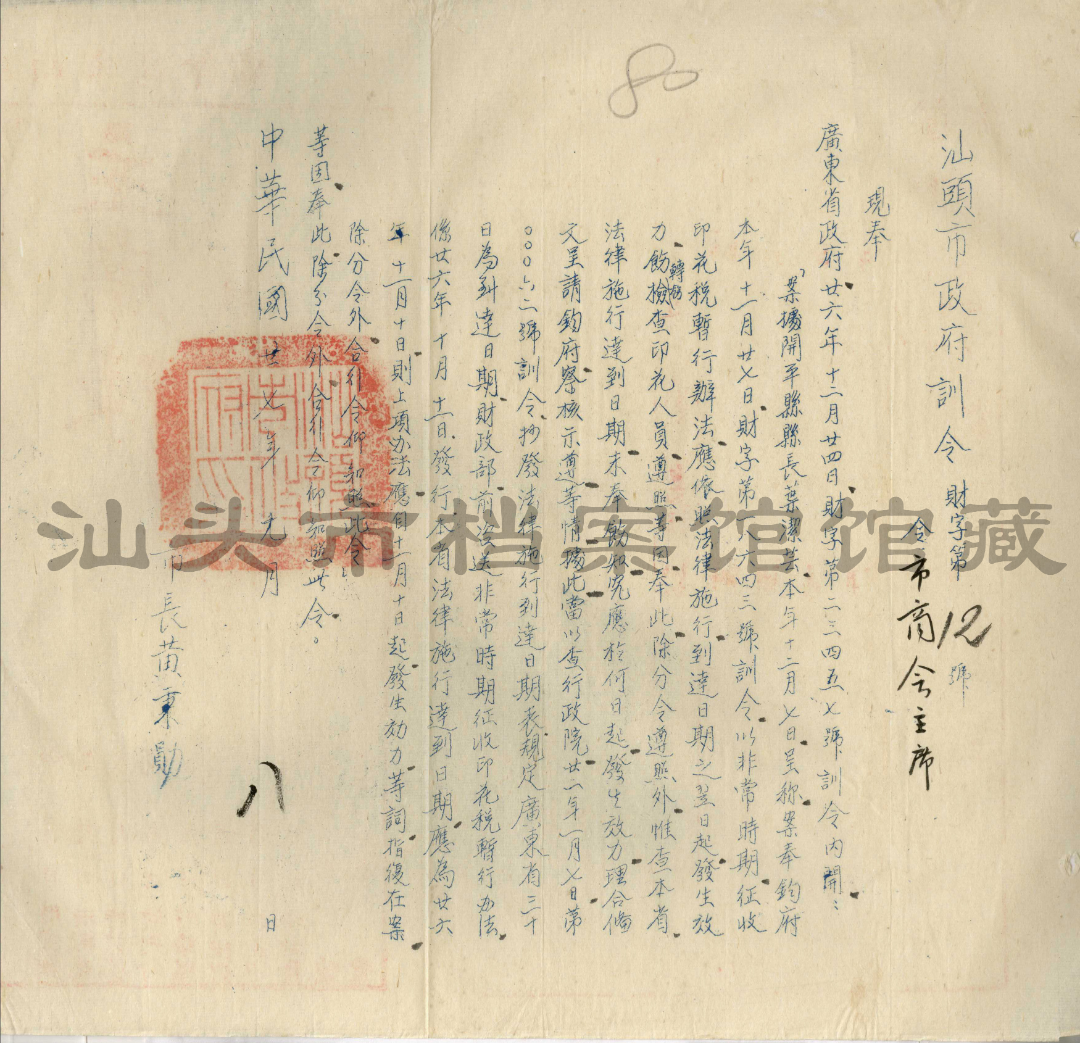 80
汕頭市政府訓令 財字第12號
令市商會主席
現奉
廣東省政府廿六年十二月廿四日財字第二三四五七號訓令內開：
「案據開平縣縣長葉潔芸本年十二月七日呈称案奉鈞府
本年十一月廿七日財字第八六四三號訓令以非常時期征收
印花稅暫行辦法應依照法律施行到達日期之翌日起發生效
力飭轉飭檢查印花人員遵照等因奉此除分令遵照外惟查本省
法律施行達到日期未奉飭知究應於何日起發生效力理合備
文呈請鈞府察核示遵等情據此當以查行政院廿一年一月七日第
〇〇〇六二號訓令抄發法律施行到達日期表規定廣東省三十
日為到達日期財政部前咨送非常時期征收印花稅暫行办法
係廿六年十月十一日發行本省法律施行達到日期應為廿六
年十一月十日則上項办法應自十一月十日起發生効力等詞指復在案
除分令外合行令仰知照此令」
等因奉此除分令外合行令仰知照此令。
中華民國廿七年元月八日
市長黃秉勛
汕头市档案馆馆藏